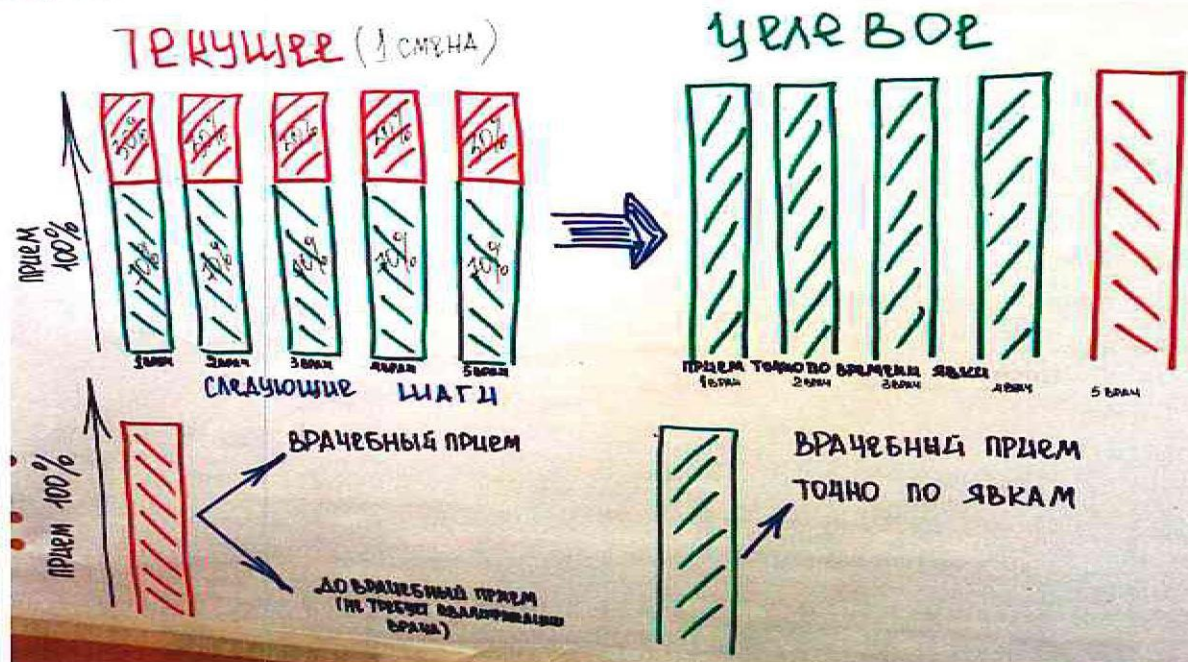 ТЕКУЩЕЕ (1 СМЕНА)
ЦЕЛЕВОЕ
ПРИЕМ 100%
30% 30% 30% 30% 30%
70% 70% 70% 70% 70%
1 ВРАЧ 2 ВРАЧ 3 ВРАЧ 4 ВРАЧ 5 ВРАЧ
ПРИЕМ ТОЧНО ПО ВРЕМЕНИ ЯВКИ
1 ВРАЧ 2 ВРАЧ 3 ВРАЧ 4 ВРАЧ 5 ВРАЧ
СЛЕДУЮЩИЕ ШАГИ
ПРИЕМ 100%
ВРАЧЕБНЫЙ ПРИЕМ
ДО ВРАЧЕБНЫЙ ПРИЕМ
(НЕ ТРЕБУЕТ КВАЛИФИКАЦИИ
ВРАЧА)
ВРАЧЕБНЫЙ ПРИЕМ
ТОЧНО ПО ЯВКАМ